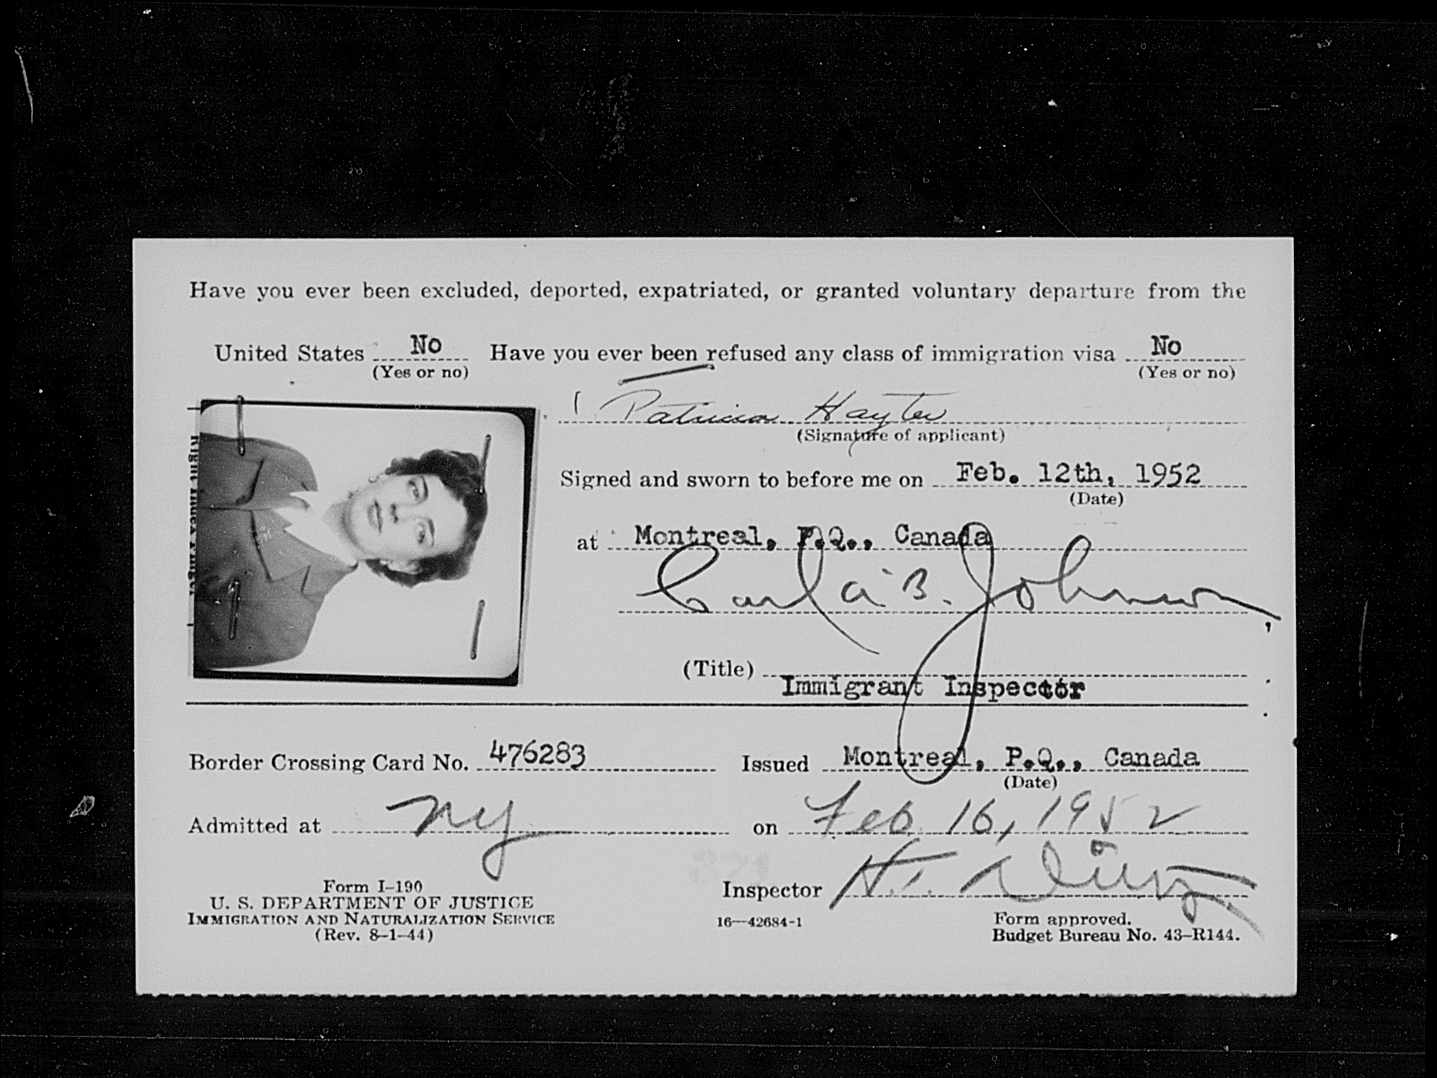 Have you ever been excluded, deported, expatriated, or granted voluntary departure from the
United States No Have you ever been refused any class of immigration visa No
(Yes or no) (Yes or no)
Patricia Hayter
(Signature of applicant)
Signed and sworn to before me on Feb. 12th, 1952
(Date)
at Montreal, P.Q., Canada
B. Johnson
(Title) Immigrant Inspector
Border Crossing Card No. 476283 Issued Montreal, P.Q., Canada
(Date)
Admitted at NY on Feb 16, 1952
Inspector H.
Form I-190
U. S. DEPARTMENT OF JUSTICE
IMMIGRATION AND NATURALIZATION SERVICE
(Rev. 8-1-44)
16—42684-1
Form approved.
Budget Bureau No. 43-R144.